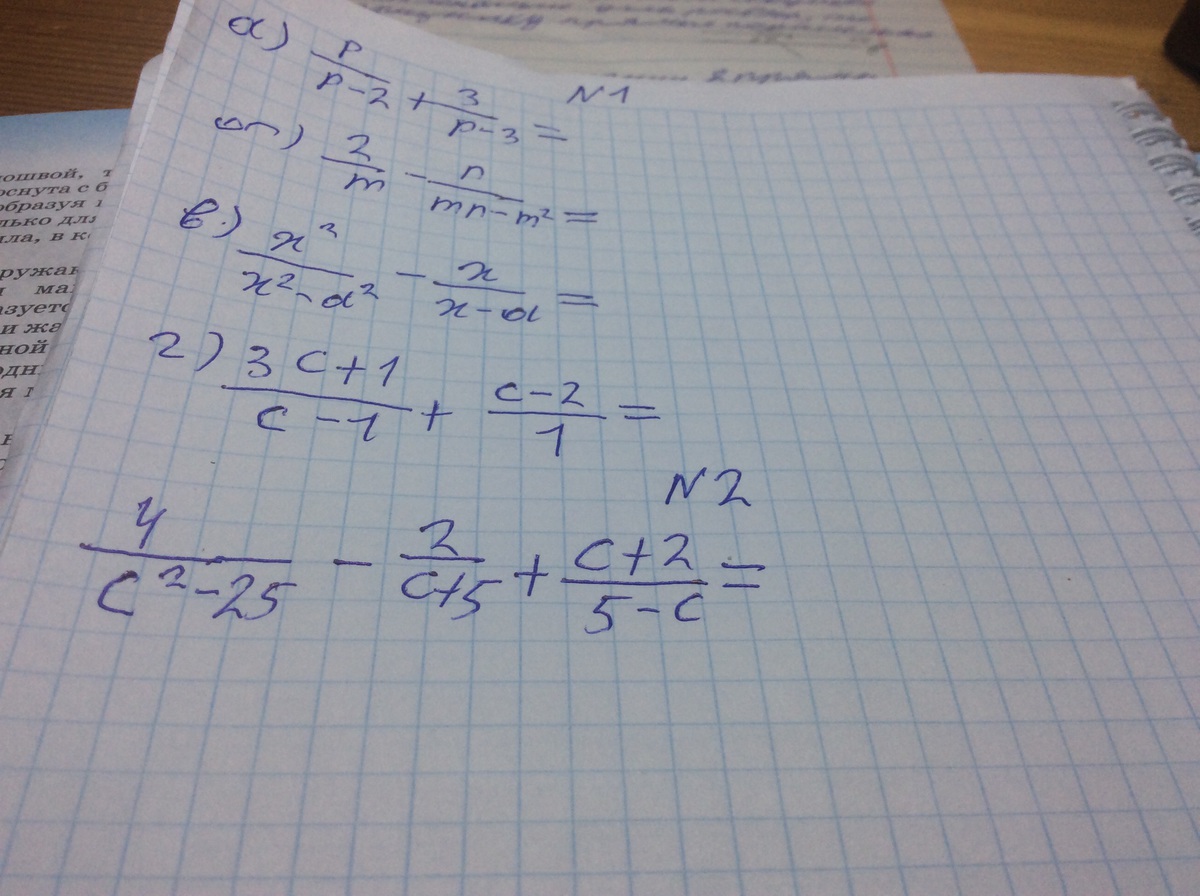 N1
а) p/(p-2) + 3/(p-3) =
б) 2/m - n/(mn-m²) =
в) x²/(x²-a²) - x/(x-a) =
г) (3c+1)/(c-1) + (c-2)/1 =
N2
4/(c²-25) - 2/(c+5) + (c+2)/(5-c) =
ошвой, т
оснута с б
образуя
лько для
ла, в к
ружаю
азуетс
и жа
ной